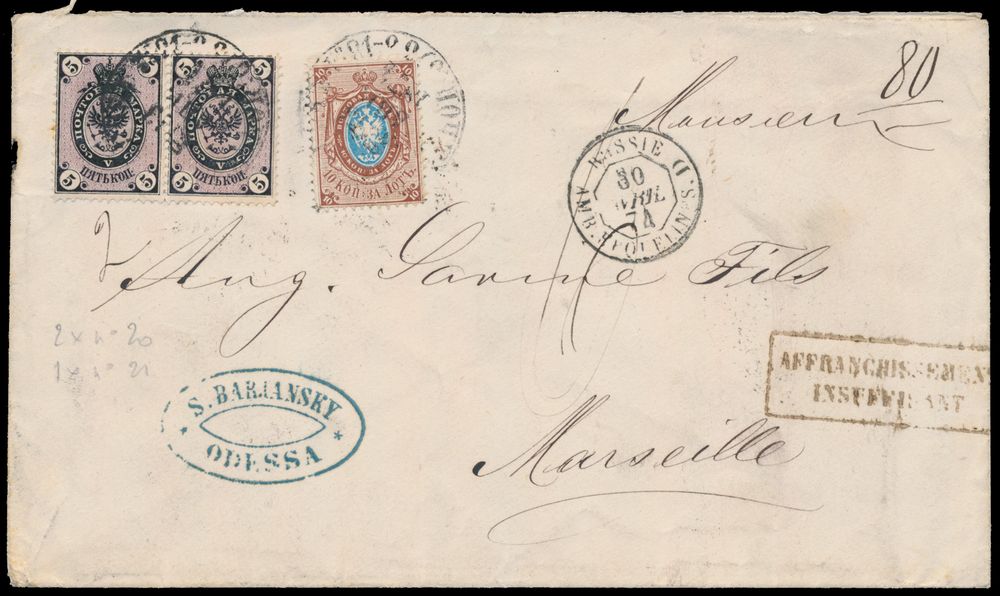 80
Monsieur
5 5
5 5
ПОЧТОВАЯ МАРКА
V
ПЯТЬ КОП.
5 5
5 5
ПОЧТОВАЯ МАРКА
V
ПЯТЬ КОП.
10 10
10 10
10 КОП. ЗА ЛОТЪ.
RUSSIE
30
AVRIL
74
Aug. Savine Fils
2 x n° 20
1 x n° 21
S. BARJANSKY
ODESSA
AFFRANCHISSEMENT
INSUFFISANT
Marseille